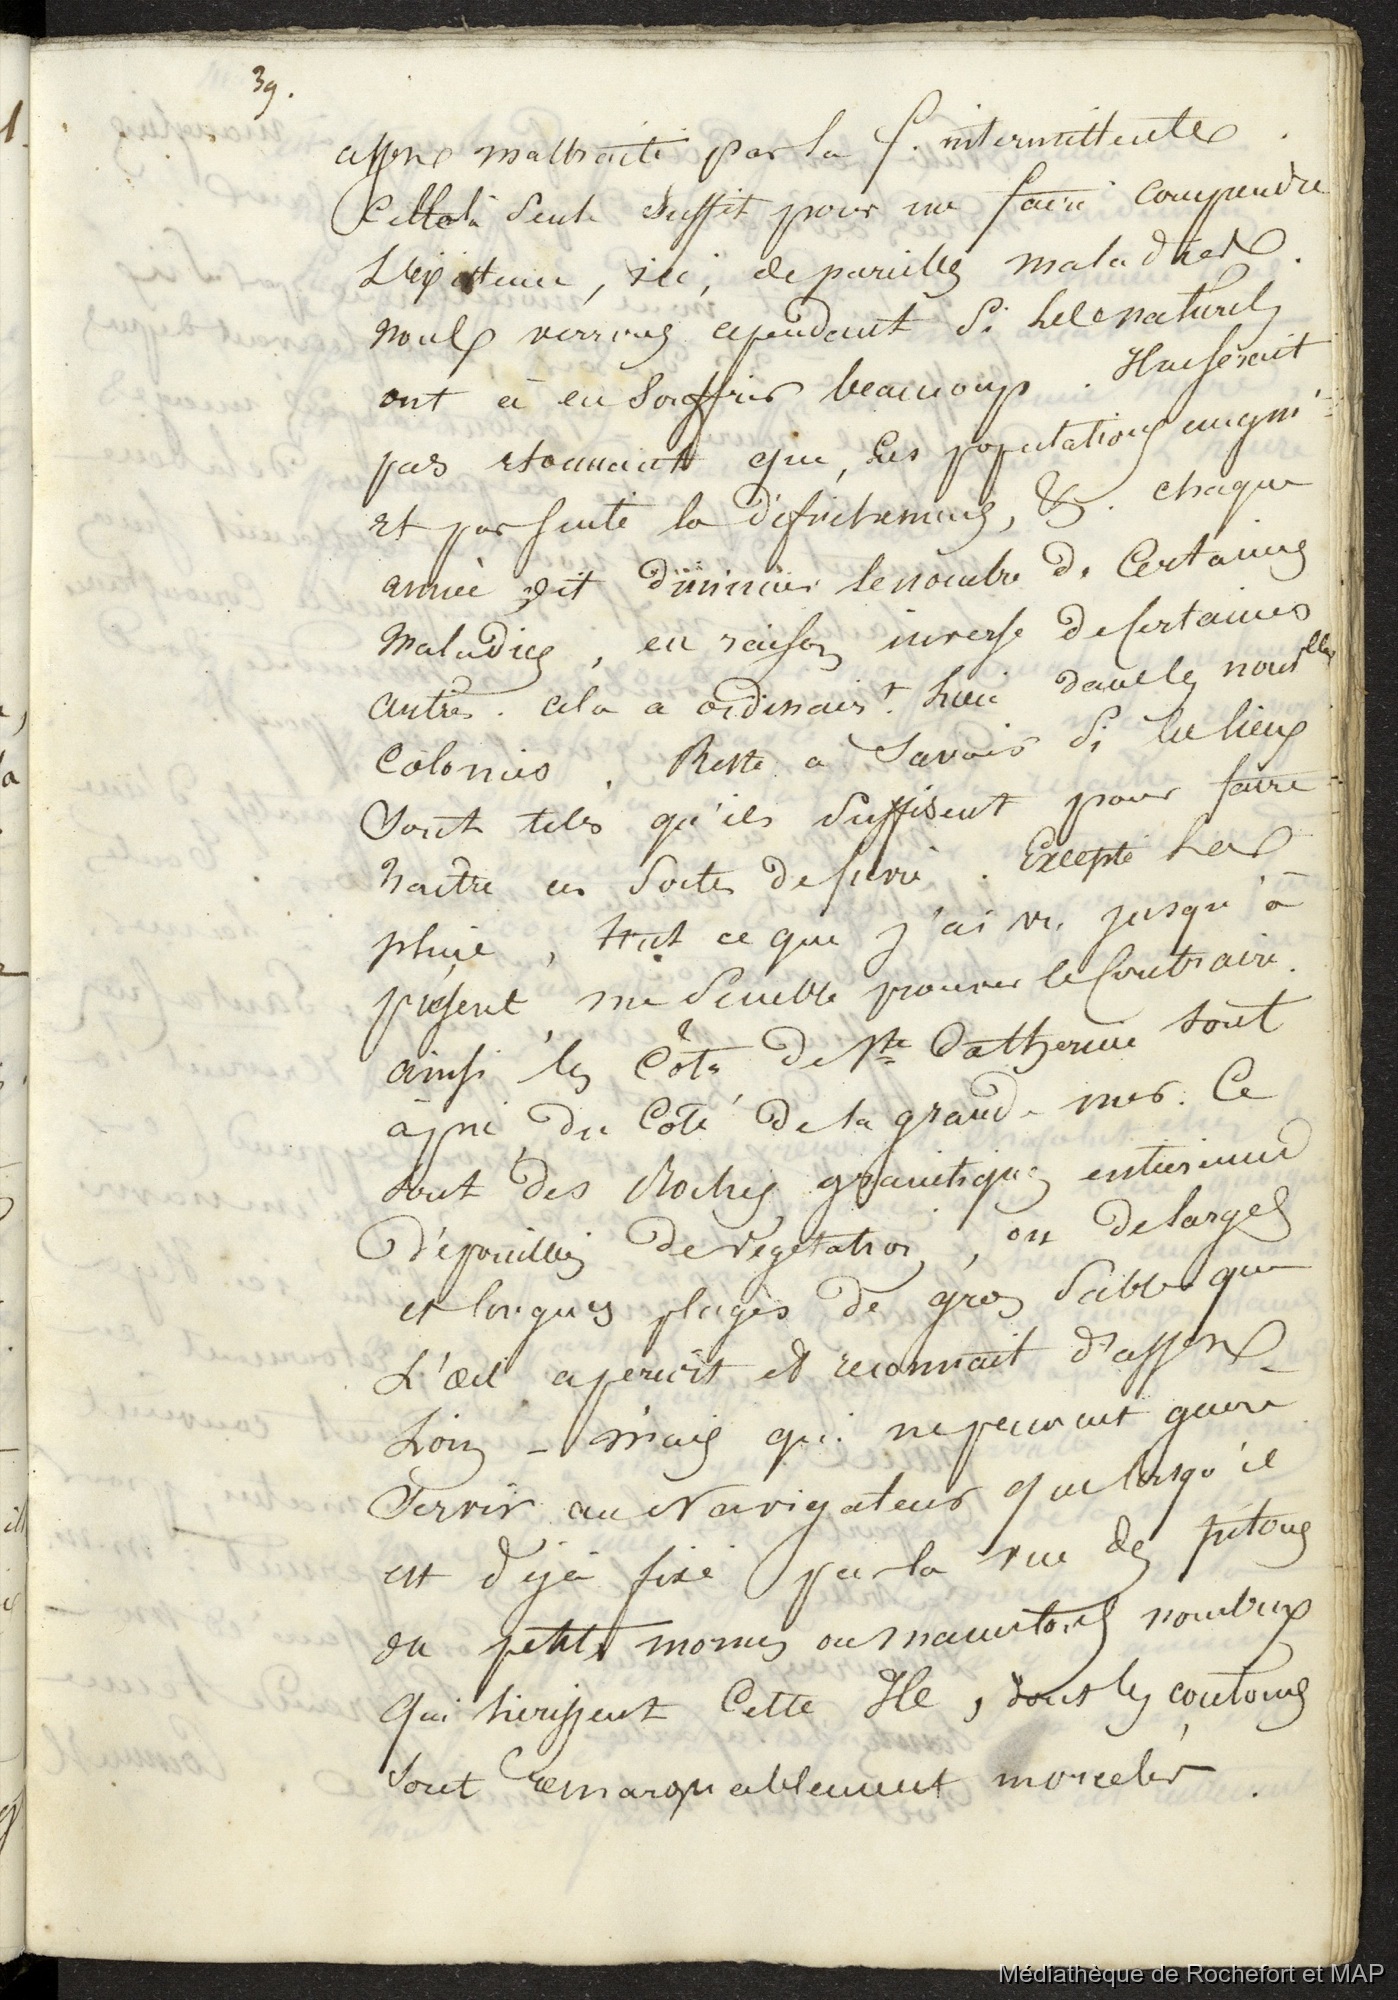 39.
assez maltraité par la f. intermittente
Cellelà seule suffit pour me faire comprendre
L'existence, ici, de pareilles maladies.
nous verrons cependant si les naturels
ont à en souffrir beaucoup. Il ne serait
pas etonnant que, les populations augm:
et par suite la défrichemens, &. chaque
année vit diminuer le nombre de Certaines
Maladies, en raison inverse de certaines
autres. cela a ordinairt. lieu dans les nouvelles
Colonies. Reste à Savoir si les lieux
Sont tels qu'ils suffisent pour faire
naître ces sortes de fièvre. Excepté les
pluie, tout ce que j'ai vu jusqu'à
présent, me semble prouver le Contraire.
ainsi les Côte de Ste Catherine sont
àpre du Côté de la grande mer. Ce
sont des Roches granitiques entièrement
Dépouillés de végétation, ou de larges
et longues plages de gros Sable que
L'œil apercoit et reconnait d'assez
Loin – mais qui ne peuvent guère
Servir au Navigateur que lorsqu'il
est déjà fixé par la vue des pitons
ou petits mornes ou mamelons nombreux
Qui hérissent Cette Ile, dont les contours
sont remarquablement morcelés.
Médiathèque de Rochefort et MAP